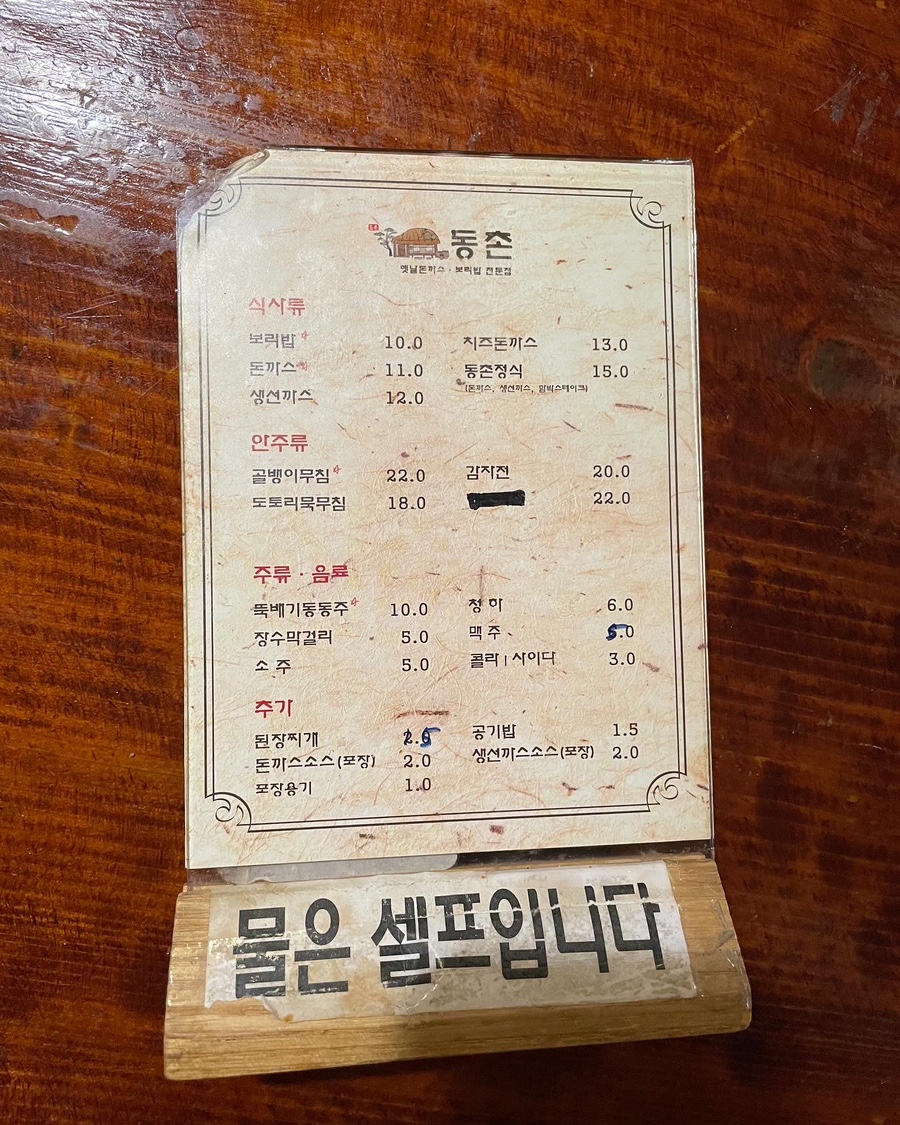 동촌
옛날돈까스 · 보리밥 전문점
식사류
보리밥 10.0 치즈돈까스 13.0
돈까스 11.0 동촌정식 15.0
(돈까스, 생선까스, 함박스테이크)
생선까스 12.0
안주류
골뱅이무침 22.0 감자전 20.0
도토리묵무침 18.0 22.0
주류 · 음료
뚝배기동동주 10.0 청하 6.0
장수막걸리 5.0 맥주 5.0
소주 5.0 콜라 | 사이다 3.0
추가
된장찌개 공기밥 1.5
돈까스소스(포장) 2.0 생선까스소스(포장) 2.0
포장용기 1.0
물은 셀프입니다